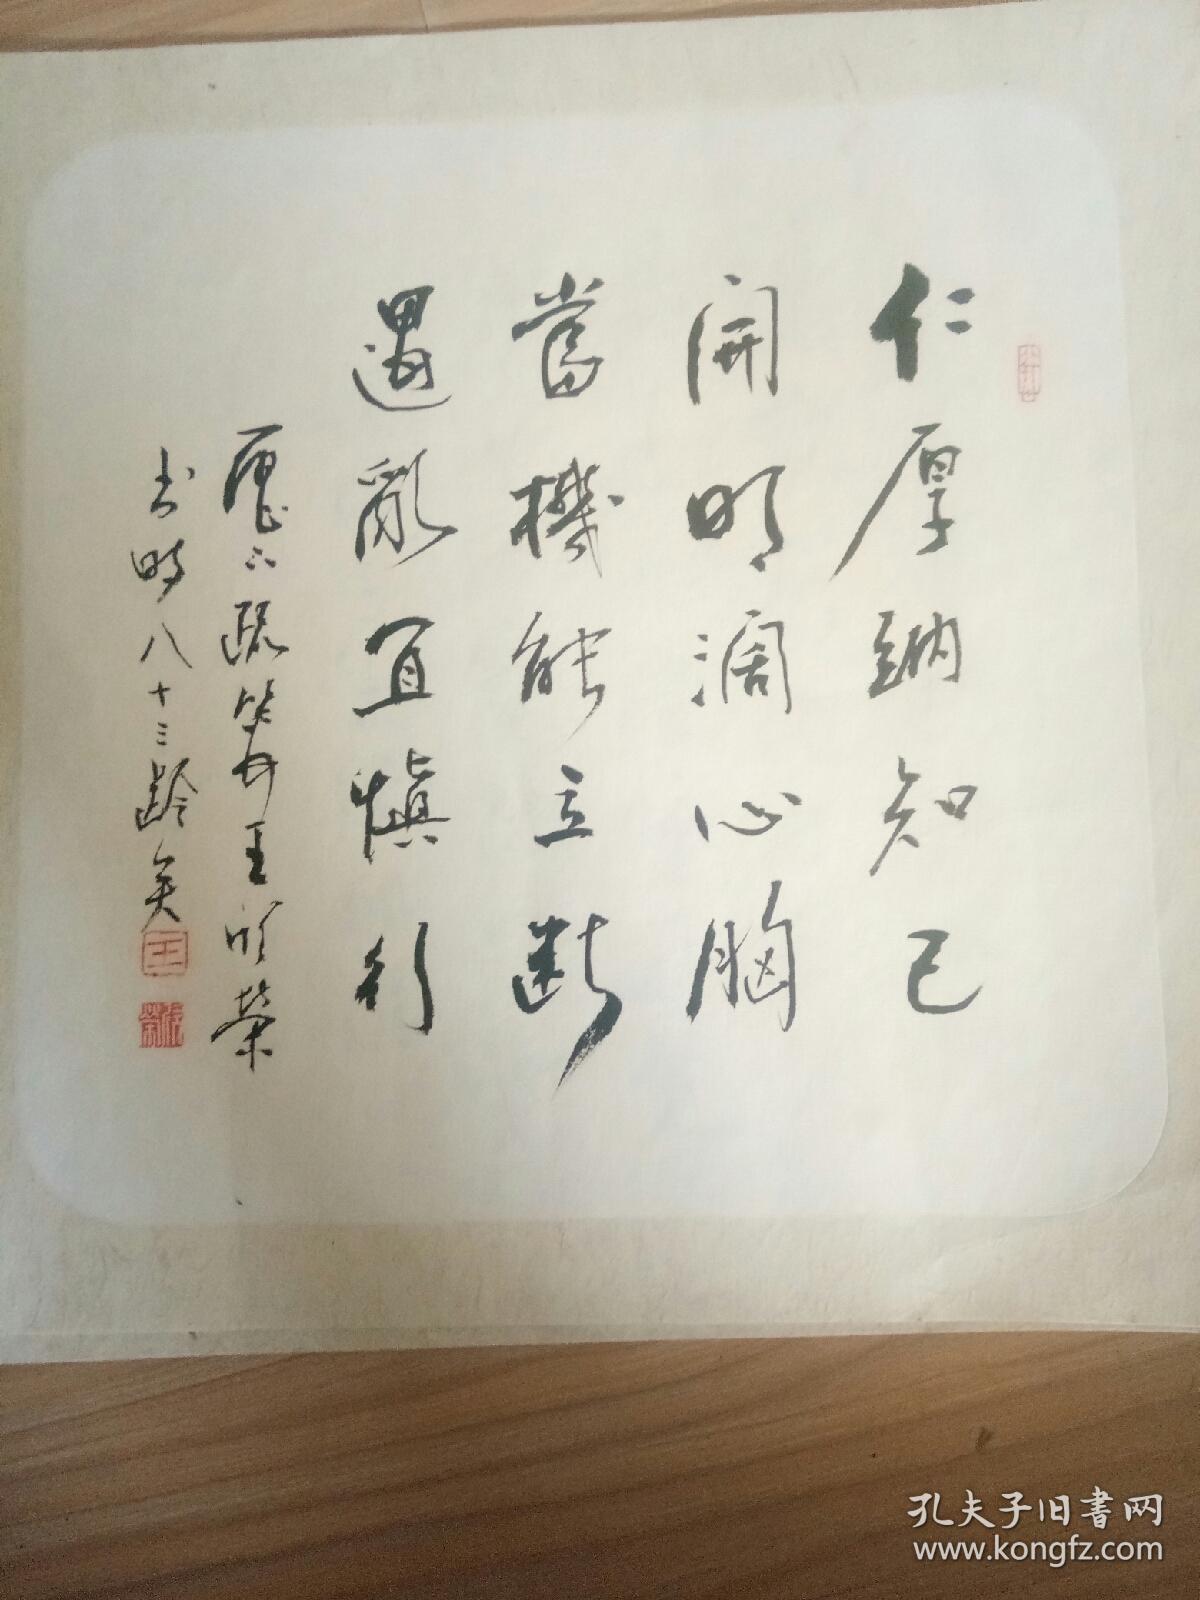 仁厚納知己
開明濶心胸
當機能立斷
遇亂宜慎行
王欣榮
书時八十三齡矣
王
孔夫子旧书网
www.kongfz.com